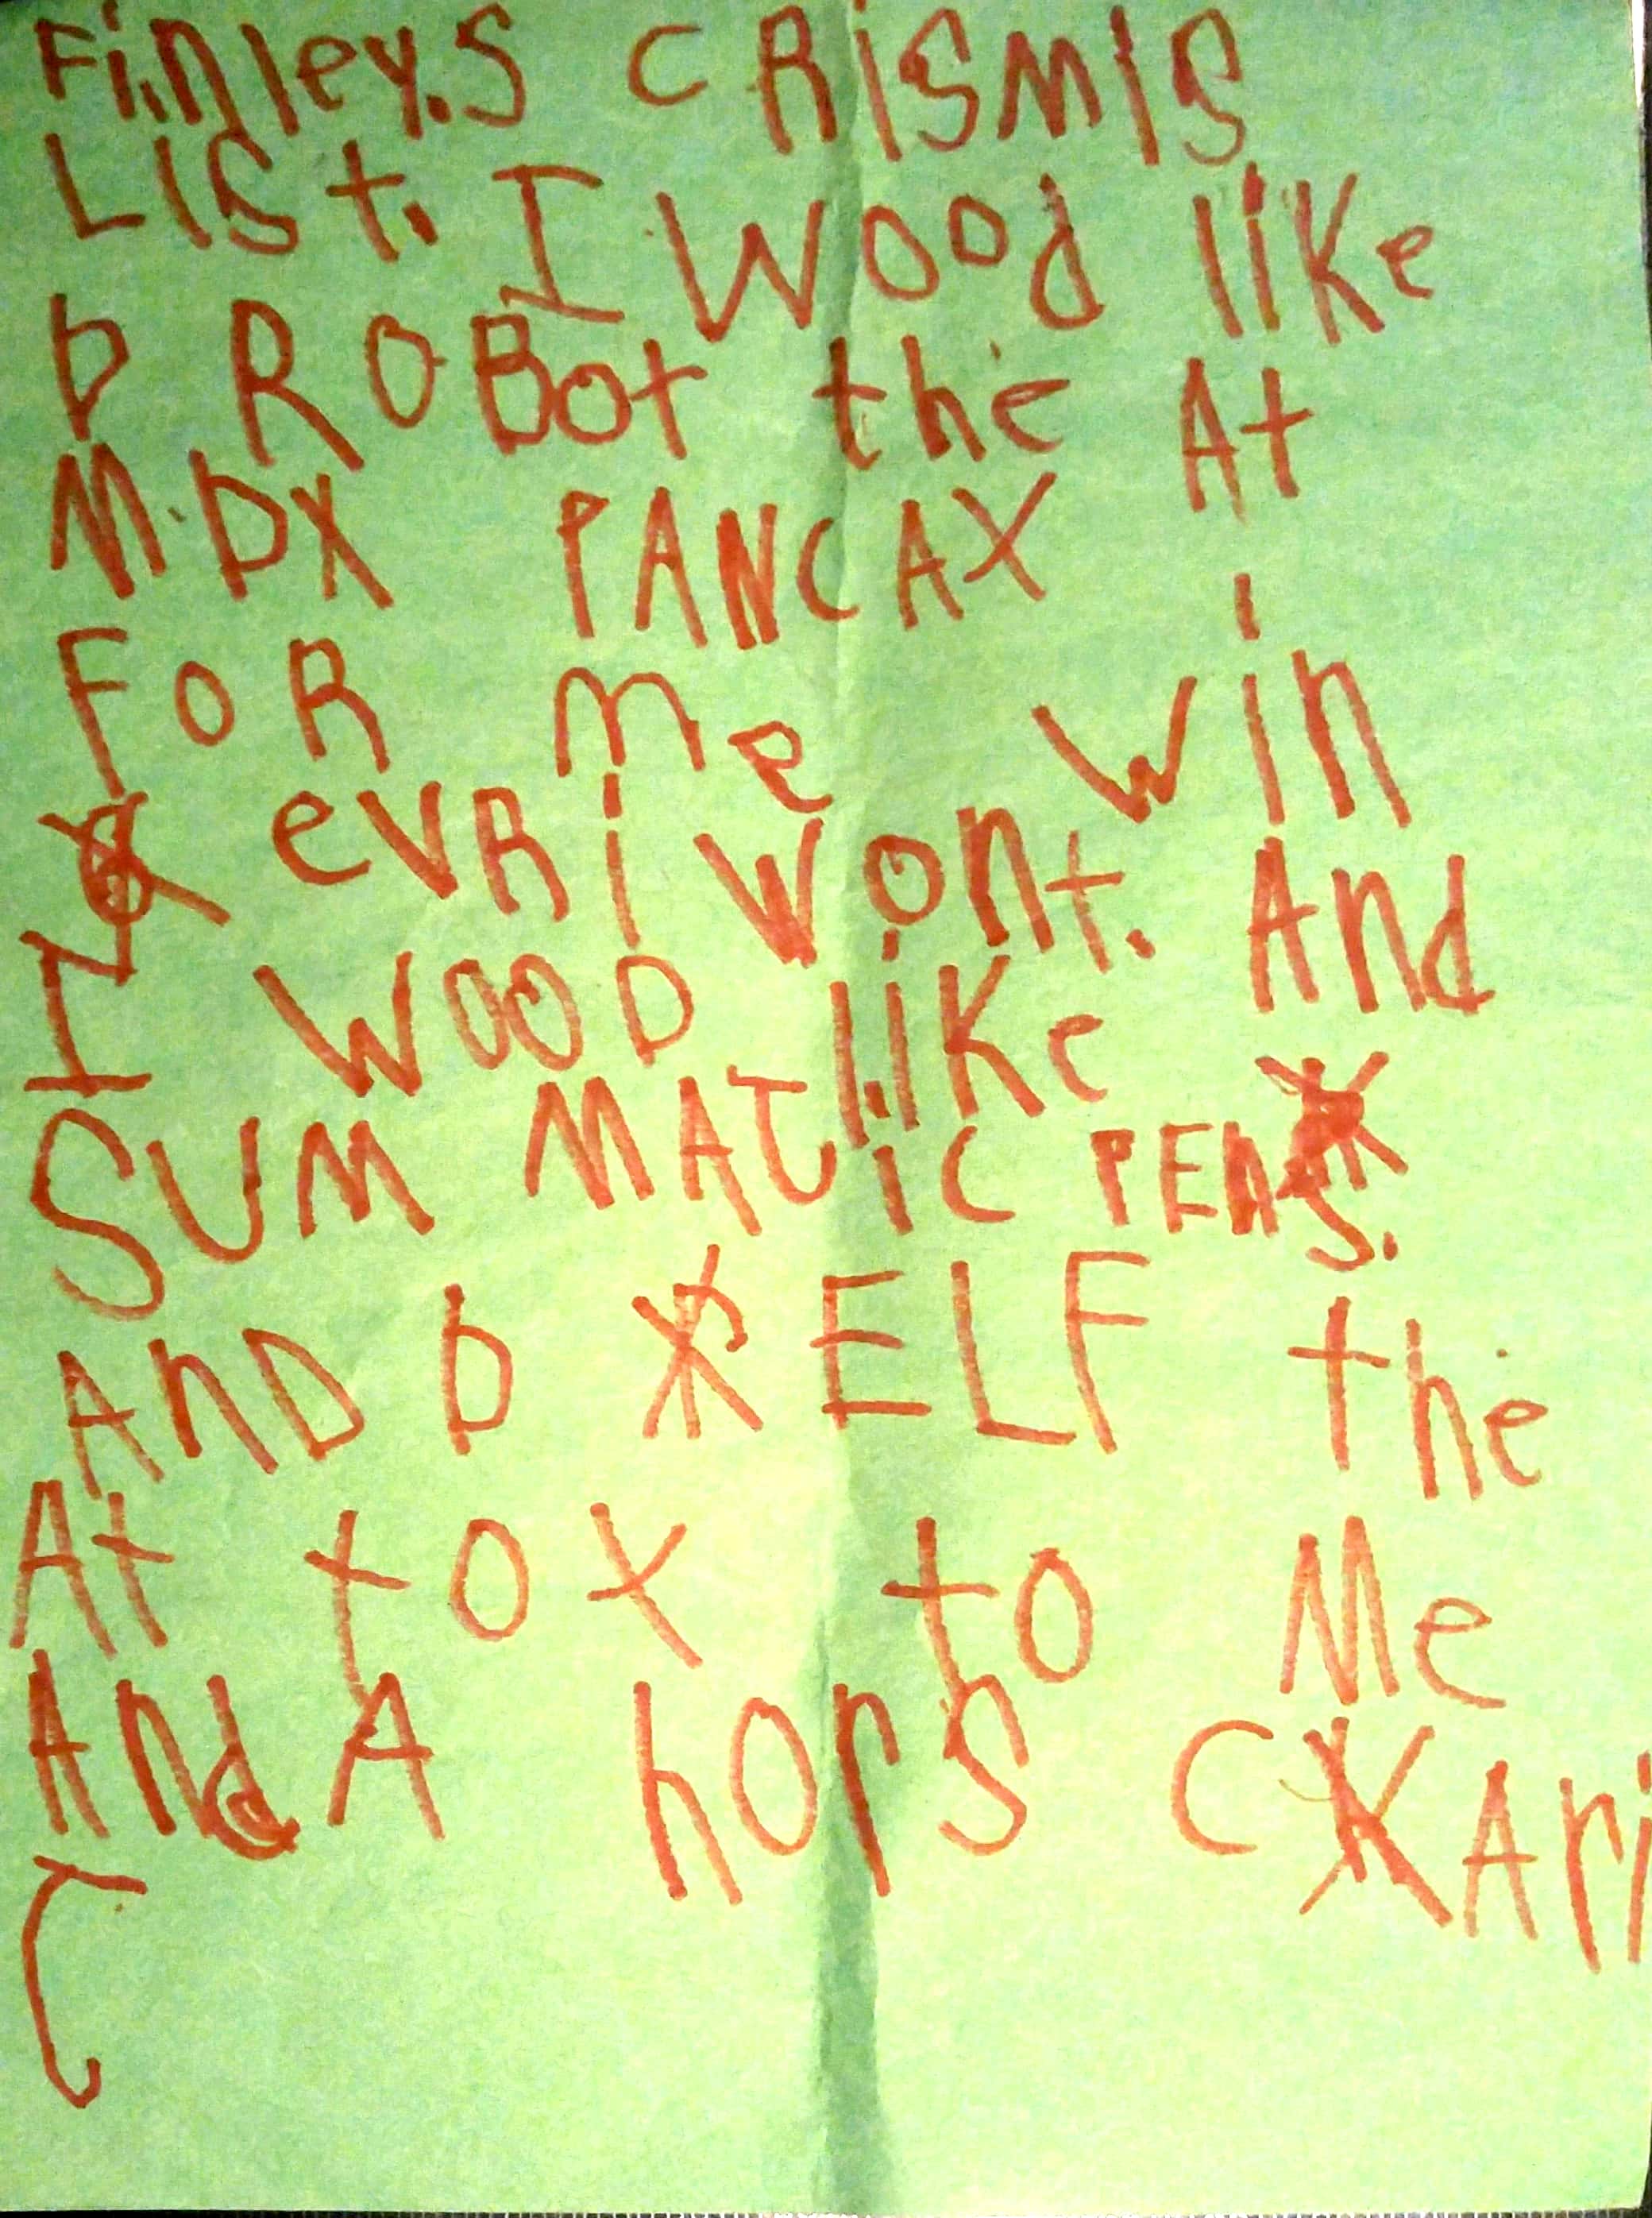 Finley.s cRisMis
List. I Wood liKe
D ROBot the At
M.DX PANCAX
FOR Me win
evRi Wont. And
I WOOD liKe
SUM MAJiC PEAS.
AnD D ELF the
At tox to Me
And A hors cAri
J